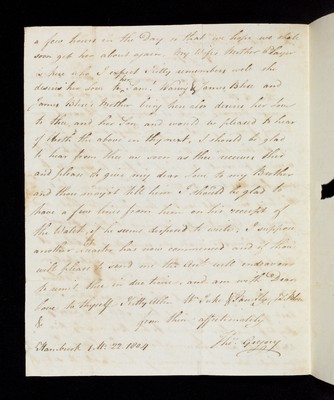 a few hours in the Day so that we hope we shall
soon get her about again. My Wifes Brother
& his wife I expect Kitty remembers well she
desires her love to her, I am. Nanny & James
James Mother being here also desires her Love
to thee and her Son and would be pleased to hear
of the above in thy next, I should be glad
to hear from thee as soon as thee receives this
and please to give my dear Love to my Brother
and thou mayst tell him I should be glad to
have a few lines from him on his receipt of
the Watch if he seems disposed to write. I suppose
another quarter has now commenced and if thou
will please to send me the Acct. will endeavour
to remit thee in due time, and am with Dear
Love to thyself Kitty, Wm. Tuke & Family,
& from thine affectionately
1 Mo. 22. 1804 Thos. Gregory